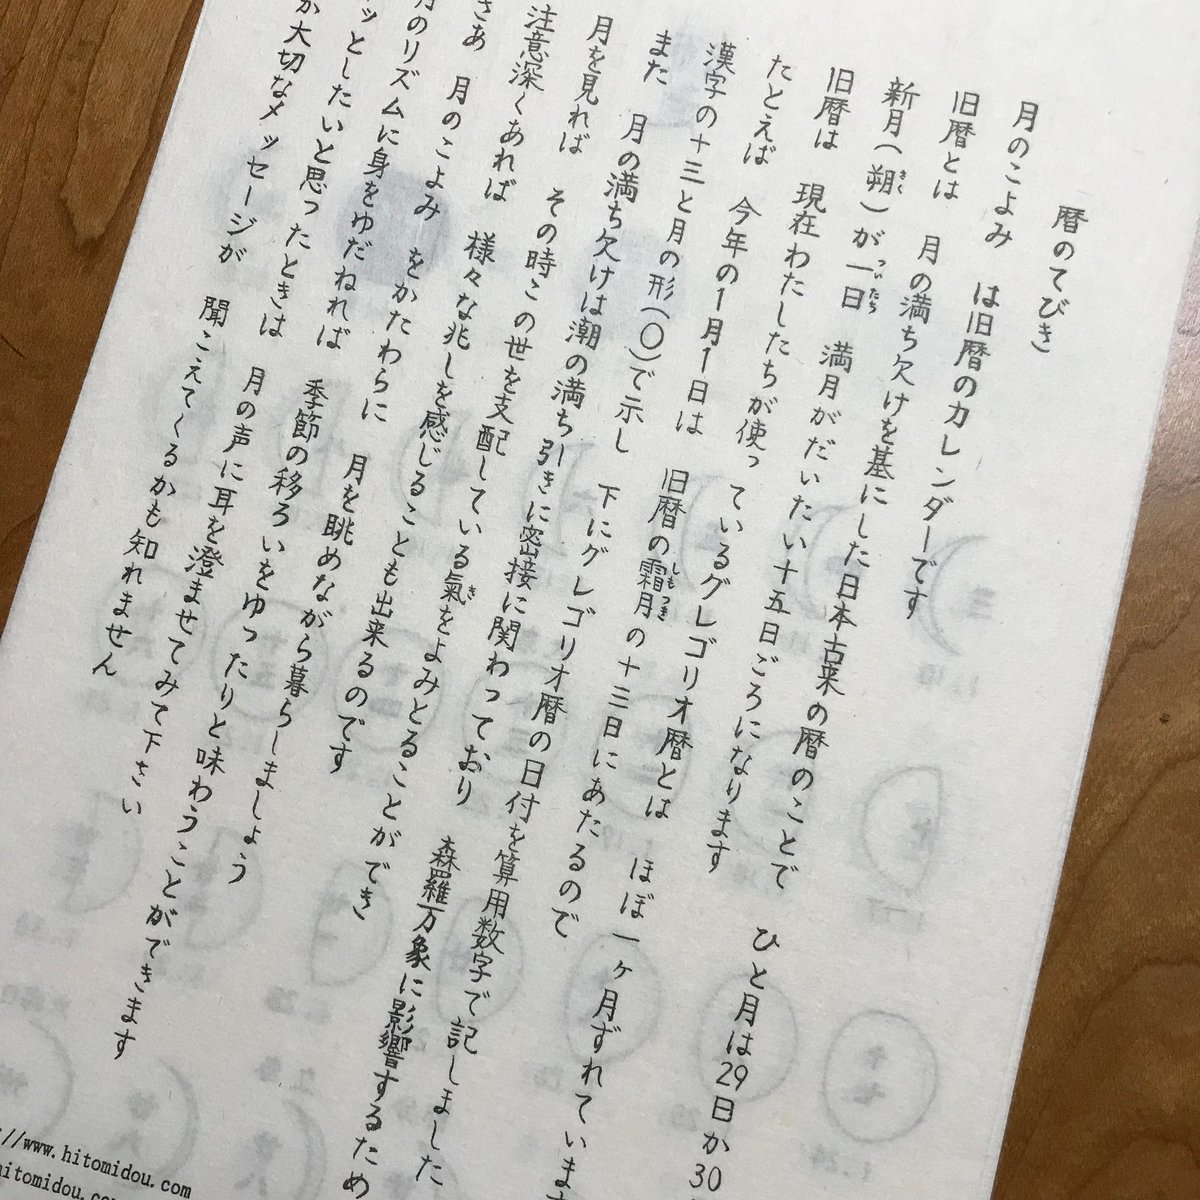 暦のてびき
月のこよみ　は旧暦のカレンダーです
旧暦とは　月の満ち欠けを基にした日本古来の暦のことで　ひと月は29日か30
新月（朔）が一日　満月がだいたい十五日ごろになります
旧暦は　現在わたしたちが使っているグレゴリオ暦とは　ほぼ一ヶ月ずれています
たとえば　今年の1月1日は　旧暦の霜月の十三日にあたるので
漢字の十三と月の形（〇）で示し　下にグレゴリオ暦の日付を算用数字で記しました
また　月の満ち欠けは潮の満ち引きに密接に関わっており　森羅万象に影響するため
月を見れば　その時この世を支配している氣をよみとることができ
注意深くあれば　様々な兆しを感じることも出来るのです
さあ　月のこよみ　をかたわらに　月を眺めながら暮らしましょう
月のリズムに身をゆだねれば　季節の移ろいをゆったりと味わうことができます
ッとしたいと思ったときは　月の声に耳を澄ませてみて下さい
か大切なメッセージが　聞こえてくるかも知れません
//www.hitomidou.com
hitomidou.co